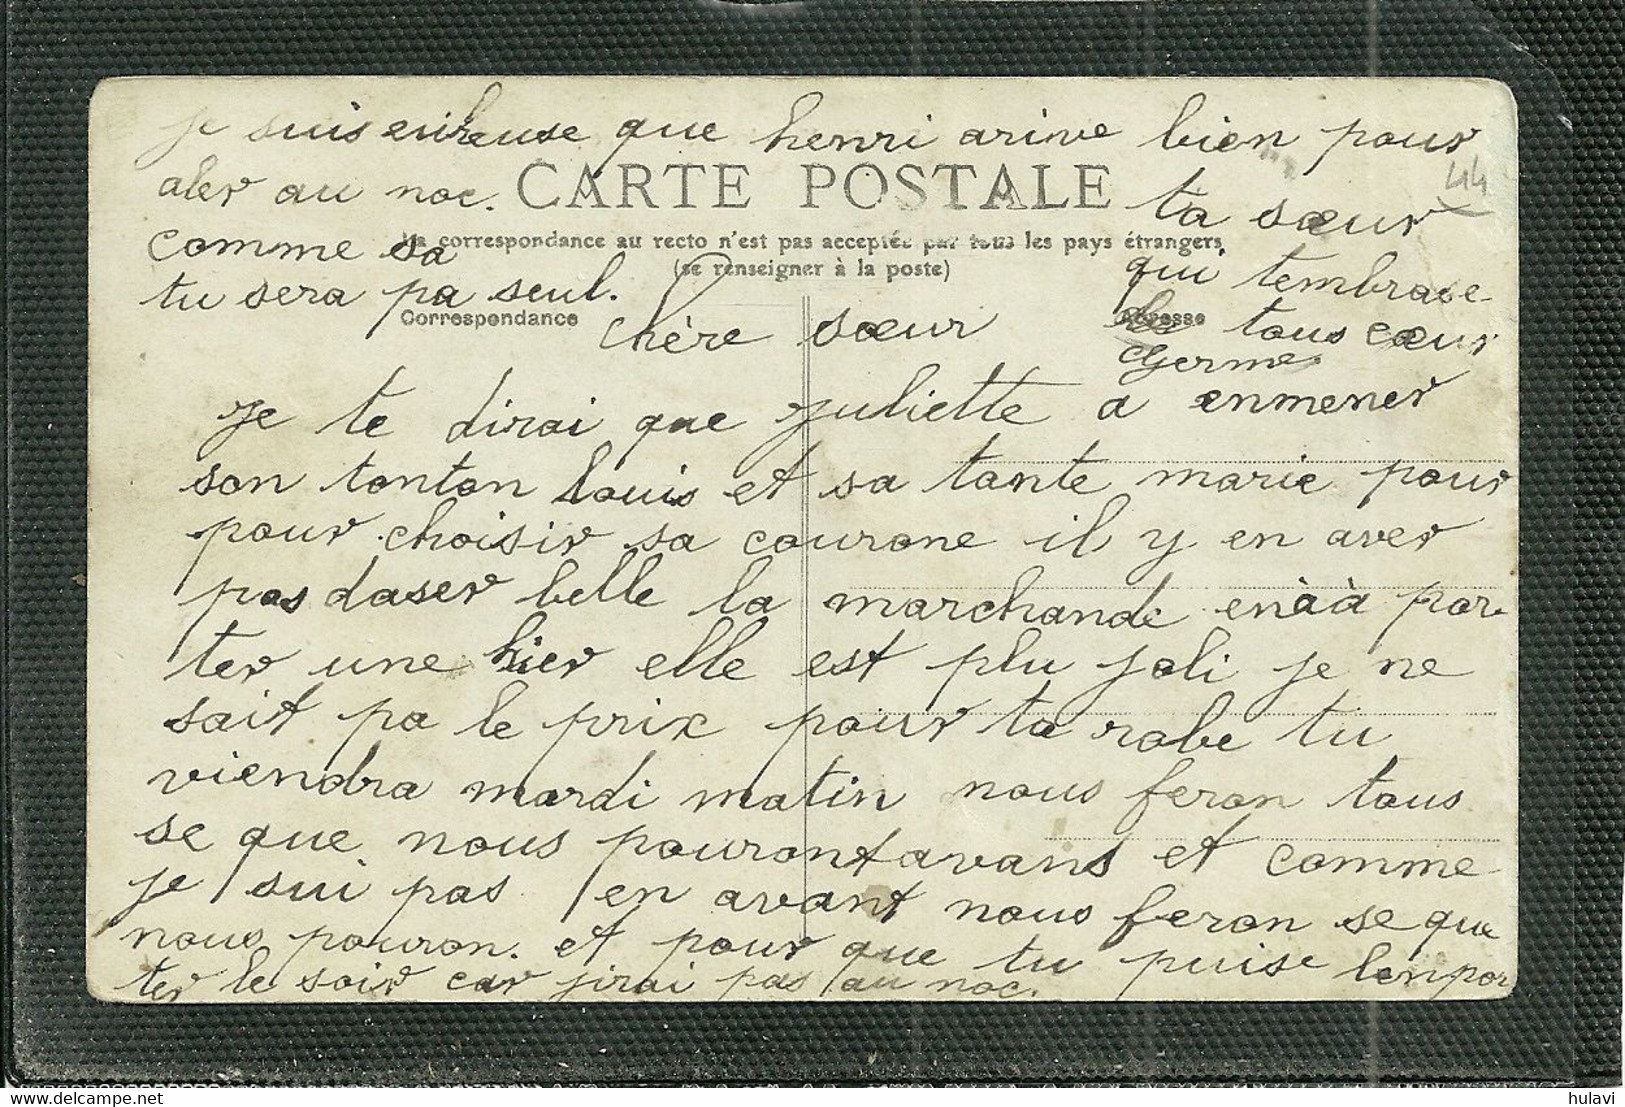 je suis eureuse que henri arive bien pour
aler au noc. CARTE POSTALE ta sœur 44
La correspondance au recto n'est pas acceptée par tous les pays étrangers
(se renseigner à la poste)
comme sa qui tembrase
tu sera pa seul. tous cœur
Correspondance Adresse
Chère sœur Germe
je te dirai que juliette a enmener
son tonton louis et sa tante marie pour
pour choisir sa courone il y en aver
pas daser belle la marchande en à à por-
ter une hier elle est plu joli je ne
sait pa le prix pour ta robe tu
viendra mardi matin nous feron tous
se que nous pouront avans et comme
je sui pas en avant nous feron se que
nous pouron. et pour que tu puise lenpor
ter le soir car jirai pas au noc.
hulavi